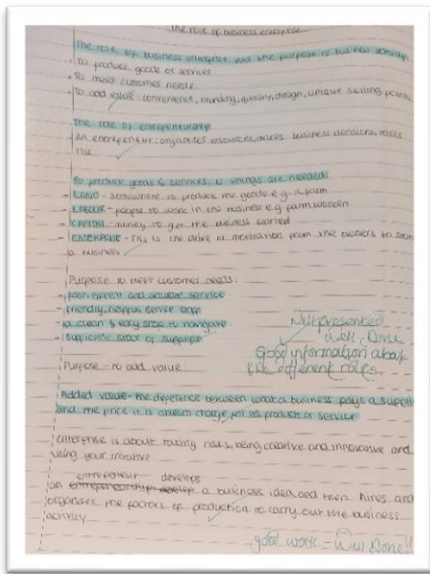 The role of business enterprise
The role of business enterprise and the purpose of business activity
• To produce goods or services
• To meet customer needs.
• To add value: convenience, branding, quality, design, unique selling points
The role of entrepreneurship
An entrepreneur: organises resources, makes business decisions, takes
risk
To produce goods & services, 4 things are needed!
LAND - somewhere to produce the goods e.g. a farm
LABOUR - people to work in the business e.g. farm workers
CAPITAL - money to get the business started
ENTERPRISE - this is the drive or motivation from the owners to
a business
Purpose to meet customer needs:
efficient and service
friendly, helpful
a clean & easy store to navigate
Purpose - to add value
Well presented
Well Done
Good information about
the different roles.
Added value - the difference between what a business pays a
and the price it is able to charge for its product or service
enterprise is about taking risks, being creative and innovative and
using your initiative
entrepreneur develops
an entrepreneurship develop a business idea and then hires and
organises the factors of production to carry out the business
activity
good work - Well Done!!